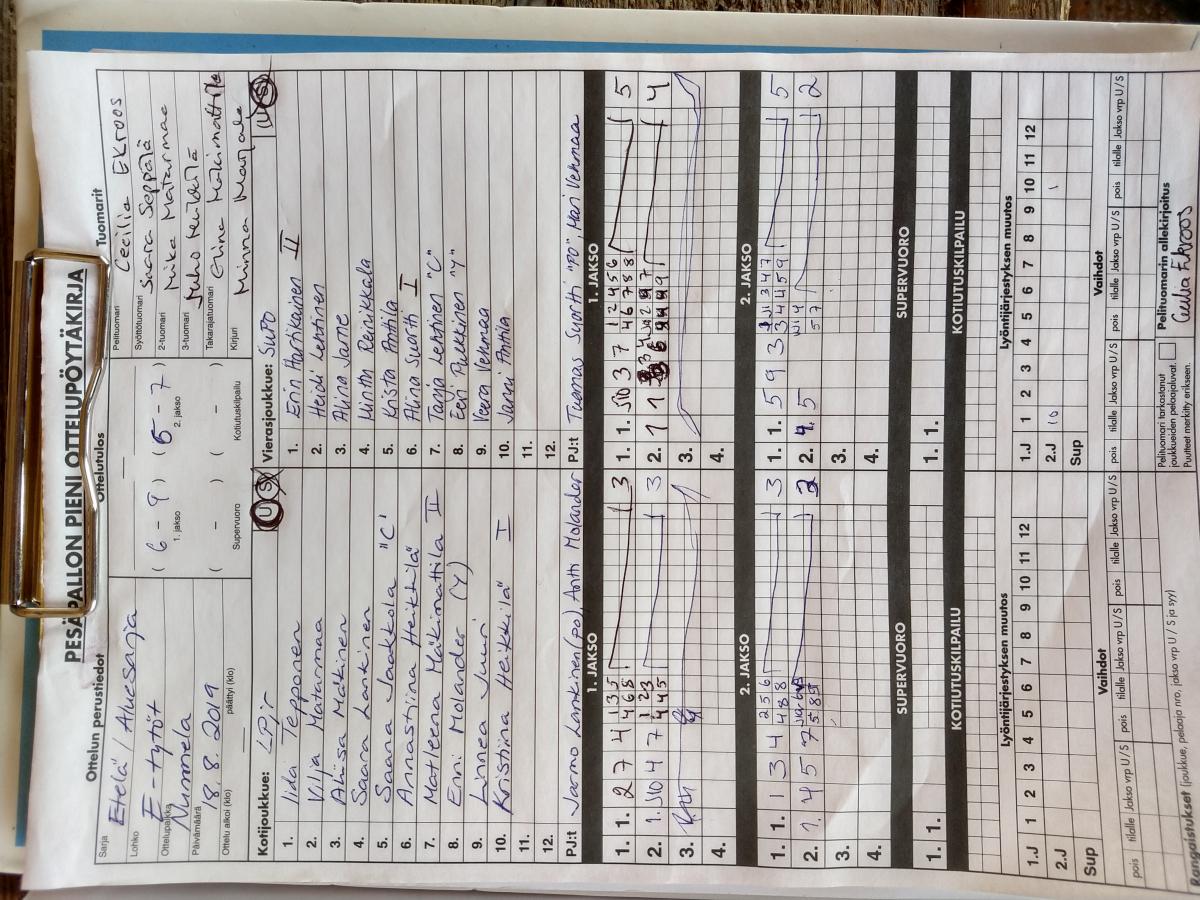 PESÄPALLON PIENI OTTELUPÖYTÄKIRJA
Ottelun perustiedot
Sarja Etelä / Aluesarja
Lohko E-tytöt
Ottelupaikka Nummela
Päivämäärä 18.8.2019
Ottelu alkoi (klo) päättyi (klo)
Ottelutulos
( 6 - 9 ) ( 5 - 7 )
1. jakso 2. jakso
( - ) ( - )
Supervuoro Kotiutuskilpailu
Tuomarit
Pelituomari Cecilia Ekroos
Syöttötuomari Saara Seppälä
2-tuomari Mika Matarmaa
3-tuomari Juho
Takarajatuomari Elina Mäkimattila
Kirjuri Minna Marjala
Kotijoukkue: LPjr U S
1. Iida Tepponen
2. Vilja Matarmaa
3. Aliisa Mäkinen
4. Saara Lankinen
5. Saana Jaakkola "C"
6. Annastiina Heikkilä
7. Matleena Mäkimattila II
8. Enni Molander (Y)
9. Linnea Juuri
10. Kristiina Heikkilä I
11.
12.
PJ:t Jarmo Lankinen (PO), Antti Molander
Vierasjoukkue: SuPo U S
1. Erin Harhikainen II
2. Heidi Lehtinen
3. Alina Jarme
4. Minttu Reinikkala
5. Krista Anttila
6. Alina Suortti I
7. Tanja Lehtinen "C"
8. Eevi Pulkkinen "Y"
9. Veera Vehmaa
10. Janni Anttila
11.
12.
PJ:t Tuomas Suortti "PO", Mari Vehmaa
1. JAKSO
1. 1. 2 7 4 1 3 5 3
4 6 5
2. 1. J10 4 7 1 2 3 3
4 4 5
3.
4.
1. JAKSO
1. 1. J10 3 7 1 2 4 5 6 5
4 6 7 8 8
2. 1 1 4
3.
4.
2. JAKSO
1. 1. 1 3 4 2 5 6 3
4 8 8
2. 1. 4 5 7 2
3.
4.
2. JAKSO
1. 1. 5 9 3 5
3 4 4 5 9
2. 4. 5 2
5 7
3.
4.
SUPERVUORO
1. 1.
SUPERVUORO
1. 1.
KOTIUTUSKILPAILU
KOTIUTUSKILPAILU
Lyöntijärjestyksen muutos
1.J 1 2 3 4 5 6 7 8 9 10 11 12
2.J
Sup
Lyöntijärjestyksen muutos
1.J 1 2 3 4 5 6 7 8 9 10 11 12
2.J 10 1
Sup
Vaihdot
pois tilalle Jakso vrp U / S pois tilalle Jakso vrp U / S pois tilalle Jakso vrp U / S
pois tilalle Jakso vrp U / S pois tilalle Jakso vrp U / S pois tilalle Jakso vrp U / S
Vaihdot
pois tilalle Jakso vrp U / S pois tilalle Jakso vrp U / S pois tilalle Jakso vrp U / S
Rangaistukset (joukkue, pelaaja nro, jakso vrp U / S ja syy)
Pelituomari tarkastanut
joukkueiden pelaajaluvat.
Puutteet merkitty erikseen.
Pelituomarin allekirjoitus
Cecilia Ekroos